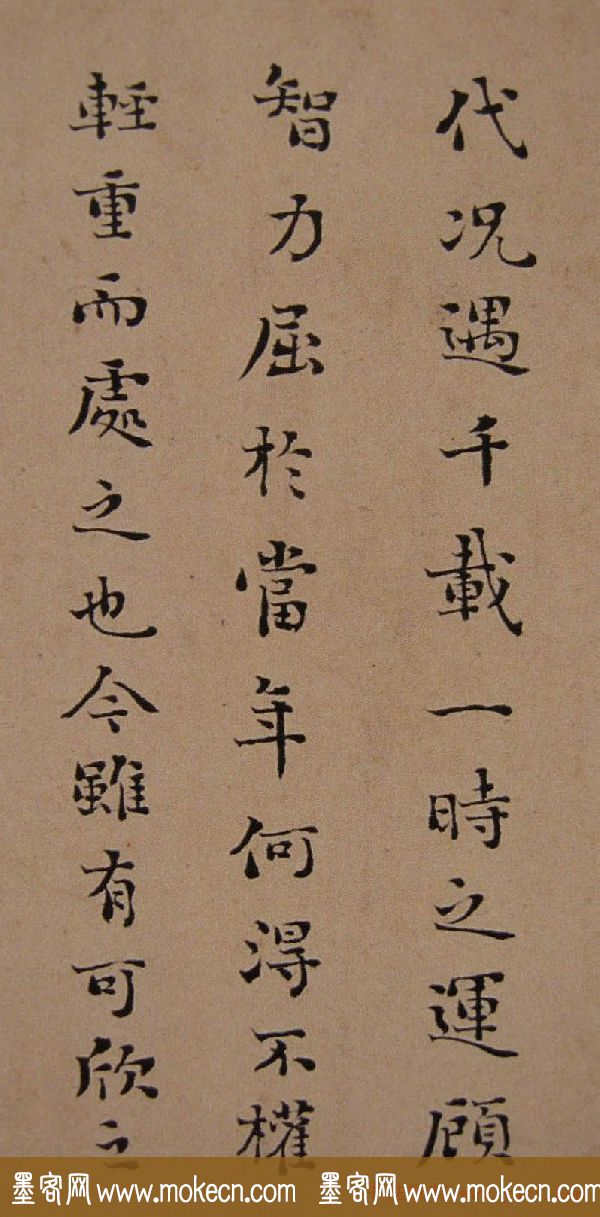 代况遇千載一時之運顧
智力屈於當年何得不權
輕重而處之也今雖有可欣之
墨客网 www.mokecn.com 墨客网 www.mokecn.com